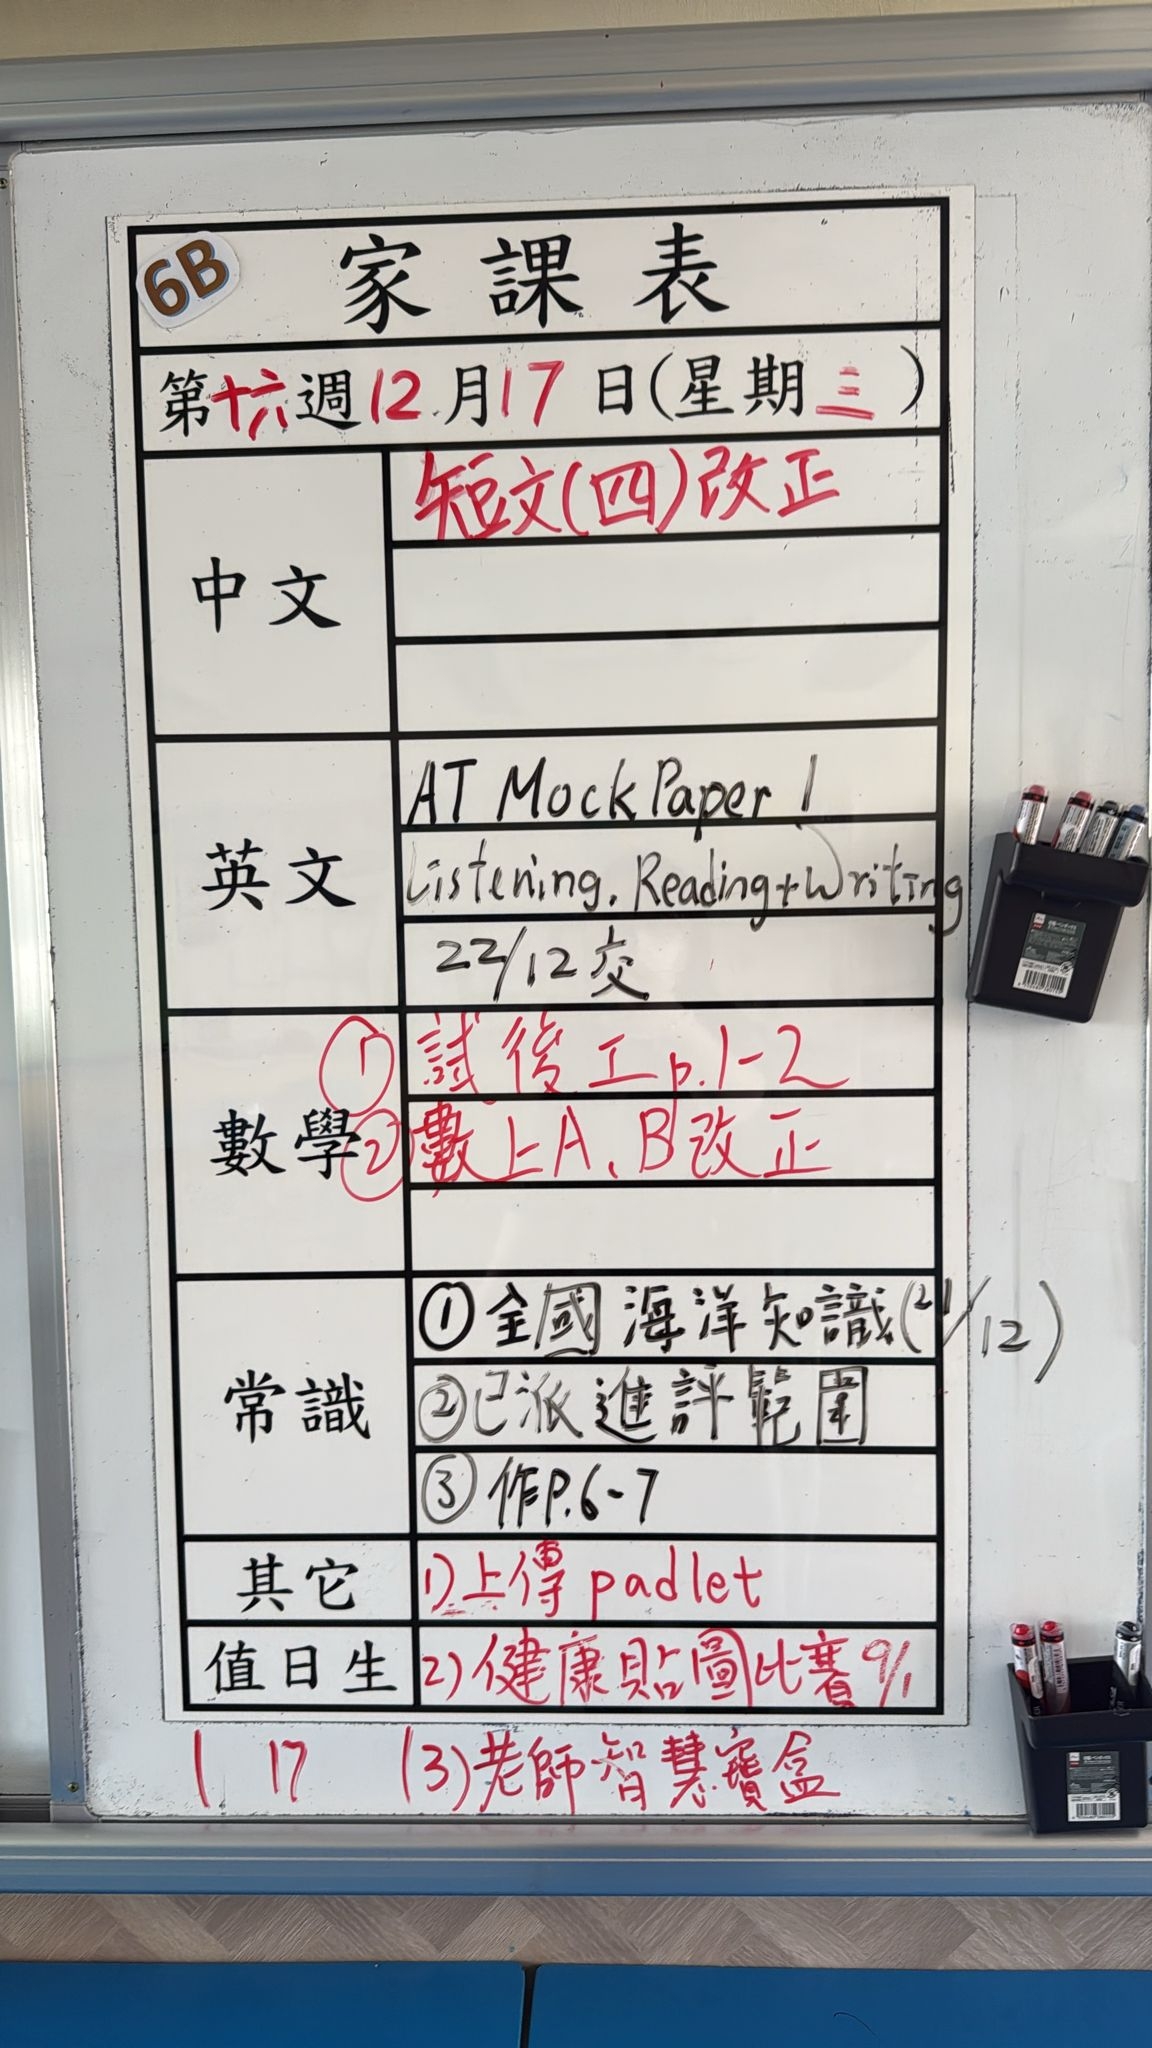 6B
家課表
第十六週12月17日(星期三)
中文
短文(四)改正
英文
AT Mock Paper 1
Listening, Reading+Writing
22/12交
數學
① 試後工p.1-2
② 數上A、B改正
常識
①全國海洋知識(21/12)
②已派進評範圍
③作P.6-7
其它
1)上傳padlet
值日生
2)健康貼圖比賽9/1
1 17
(3)老師智慧寶盒